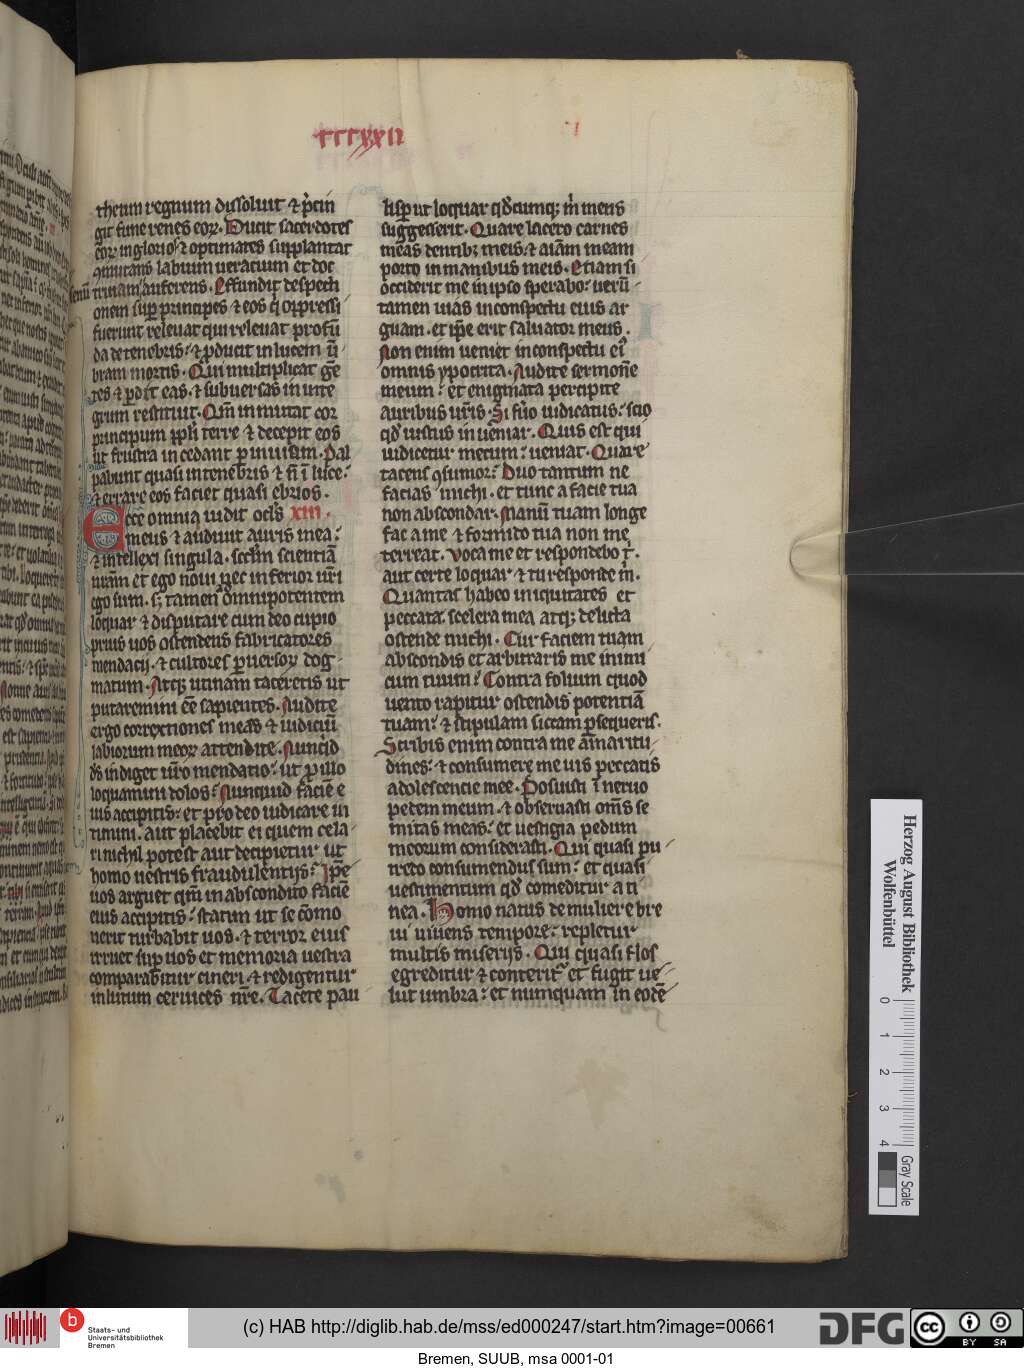 theum regnum dissoluit & p̄cin
git fune renes eoꝝ. Ducit sacerdotes
eoꝝ inglorios & optimates supplantat
ꝯmutans labium ueracium et doc
trinam auferens. Effundit despecti
onem suꝑ principes & eos q̇ oppressi
fuerunt releuat qui reuelat profū
da de tenebris: & ꝓducit in lucem ū
bram mortis. Qui multiplicat gē
tes & ꝑdit eas. & subuersas in inte
grum restituit. Qui inmutat cor
principum ppli terre & decepit eos
ut frustra incedant ꝑ inuium. Pal
pabunt quasi in tenebris & n̄ ī luce:
& errare eos faciet quasi ebrios.
Ecce omnia uidit ocl's XIII.
meus & audiuit auris mea:
& intellexi singula. scd̄m scientiā
uram̄ et ego noui nec inferior ur̄i
ego sum. sꝫ tamen omnipotentem
loquar & disputare cum deo cupio
prius uos ostendens fabricatores
mendacij. & cultores ꝑuersoꝝ dog
matum. Atqꝫ utinam taceretis ut
putaremini eē sapientes. Audite
ergo correctiones meas & iudiciū
labiorum meoꝝ attendite. Nunqid
ds̄ indiget uro mendatio: ut ꝑ illo
loquamini dolos: Nunquid faciē e
ius accipitis: et pro deo iudicare ni
timini. aut placebit ei quem cela
ri nichil potest aut decipietur ut
homo uestris fraudulentijs: Ipē
uos arguet qm̄ in abscondito faciē
eius accipitis: statim ut se cōmo
uerit turbabit uos. & terror eius
irruet suꝑ uos et memoria uestra
comparabitur cineri. & redigentur
in lutum ceruices ur̄e. Tacete pau
lisꝑ ut loquar qd̄cumqꝫ m̄ mens
suggesserit. Quare lacero carnes
meas dentibꝫ meis. & aīam meam
porto in manibus meis. Etiam si
occiderit me in ipso sperabo: uerū
tamen uias in conspectu eius ar
guam. et ip̄e erit saluator meus.
Non enim ueniet in conspectu ei'
omnis ypocrita. Audite sermonē
meum: et enigmata percipite
auribus ur̄is. Si fu'o iudicatus: scio
qd̄ iustus inueniar. Quis est qui
iudicetur mecum: ueniat. Quare
tacens ꝯsumor: Duo tantum ne
facias michi. et tunc a facie tua
non abscondar. Manū tuam longe
fac a me & formido tua non me
terreat. Voca me et respondebo t'.
aut certe loquar & tu responde m̄.
Quantas habeo iniquitates et
peccata. scelera mea atqꝫ delicta
ostende michi. Cur faciem tuam
abscondis et arbitraris me inimi
cum tuum: Contra folium quod
uento rapitur ostendis potentiā
tuam: & stipulam siccam ꝑsequeris.
Scribis enim contra me amaritu
dines: & consumere me uis peccatis
adolescencie mee. Posuisti ī neruo
pedem meum. & obseruasti oms̄ se
mitas meas: et uestigia pedum
meorum considerasti. Qui quasi pu
tredo consumendus sum: et quasi
uestimentum qd̄ comeditur a ti
nea. Homo natus de muliere bre
ui uiuens tempore: repletur
multis miserijs. Qui quasi flos
egreditur & conterit' et fugit ue
lut umbra: et numquam in eodē
Herzog August Bibliothek
Wolfenbüttel
0 1 2 3 4
Gray Scale
b Staats- und
Universitätsbibliothek
Bremen
(c) HAB http://diglib.hab.de/mss/ed000247/start.htm?image=00661
DFG
cc BY SA
Bremen, SUUB, msa 0001-01